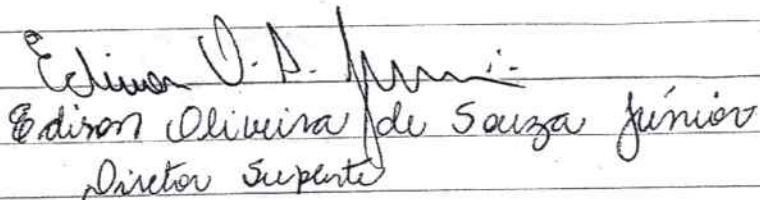 Edison O. S. Júnior
Edison Oliveira de Souza Júnior
Diretor Suplente